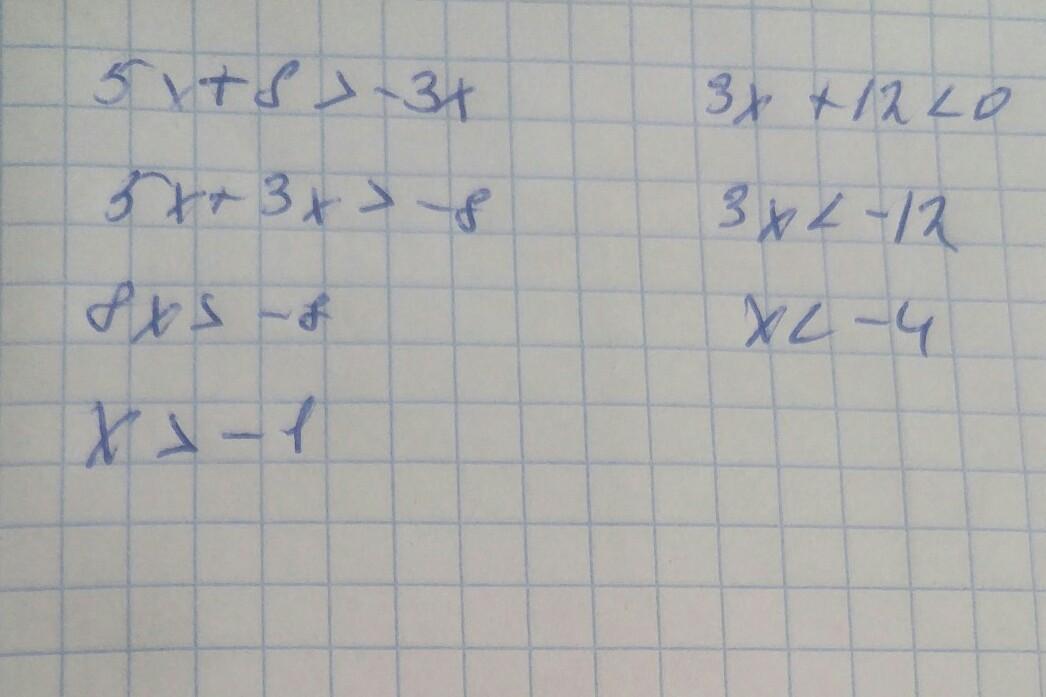 5x+8>-3x
5x+3x>-8
8x>-8
x>-1
3x+12<0
3x<-12
x<-4